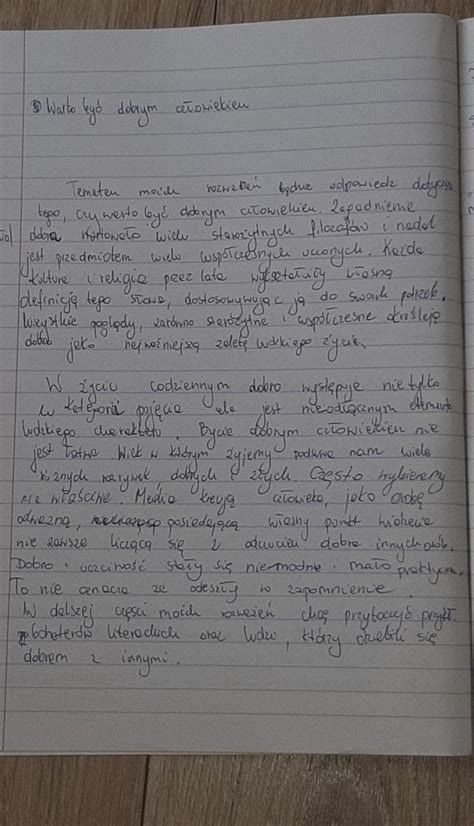 Warto być dobrym człowiekiem
Tematem moich rozważań będzie odpowiedź dotycząca
tego, czy warto być dobrym człowiekiem. Zagadnienie
dobra nurtowało wielu starożytnych filozofów i nadal
jest przedmiotem wielu współczesnych uczonych. Każda
kultura i religia przez lata wykształciły własną
definicję tego słowa, dostosowywując ją do swoich potrzeb.
Wszystkie poglądy, zarówno starożytne i współczesne określają
dobro jako najważniejszą zaletę ludzkiego życia.
W życiu codziennym dobro występuje nie tylko
w kategorii pojęcia ale jest nieodłącznym elementem
ludzkiego charakteru. Bycie dobrym człowiekiem nie
jest łatwe. Wiek w którym żyjemy podsuwa nam wiele
różnych rozrywek, dobrych i złych. Często wybieramy
nie właściwe. Media kreują człowieka, jako osobę
odważną, posiadającą własny punkt widzenia
nie zawsze liczącą się z odczuciem dobra innych osób.
Dobro i uczciwość stały się niemodne i mało praktyczne.
To nie oznacza że odeszły w zapomnienie.
W dalszej części moich rozważań chcę przytoczyć przykł.
bohaterów literackich oraz ludzi, którzy dzielili się
dobrem z innymi.